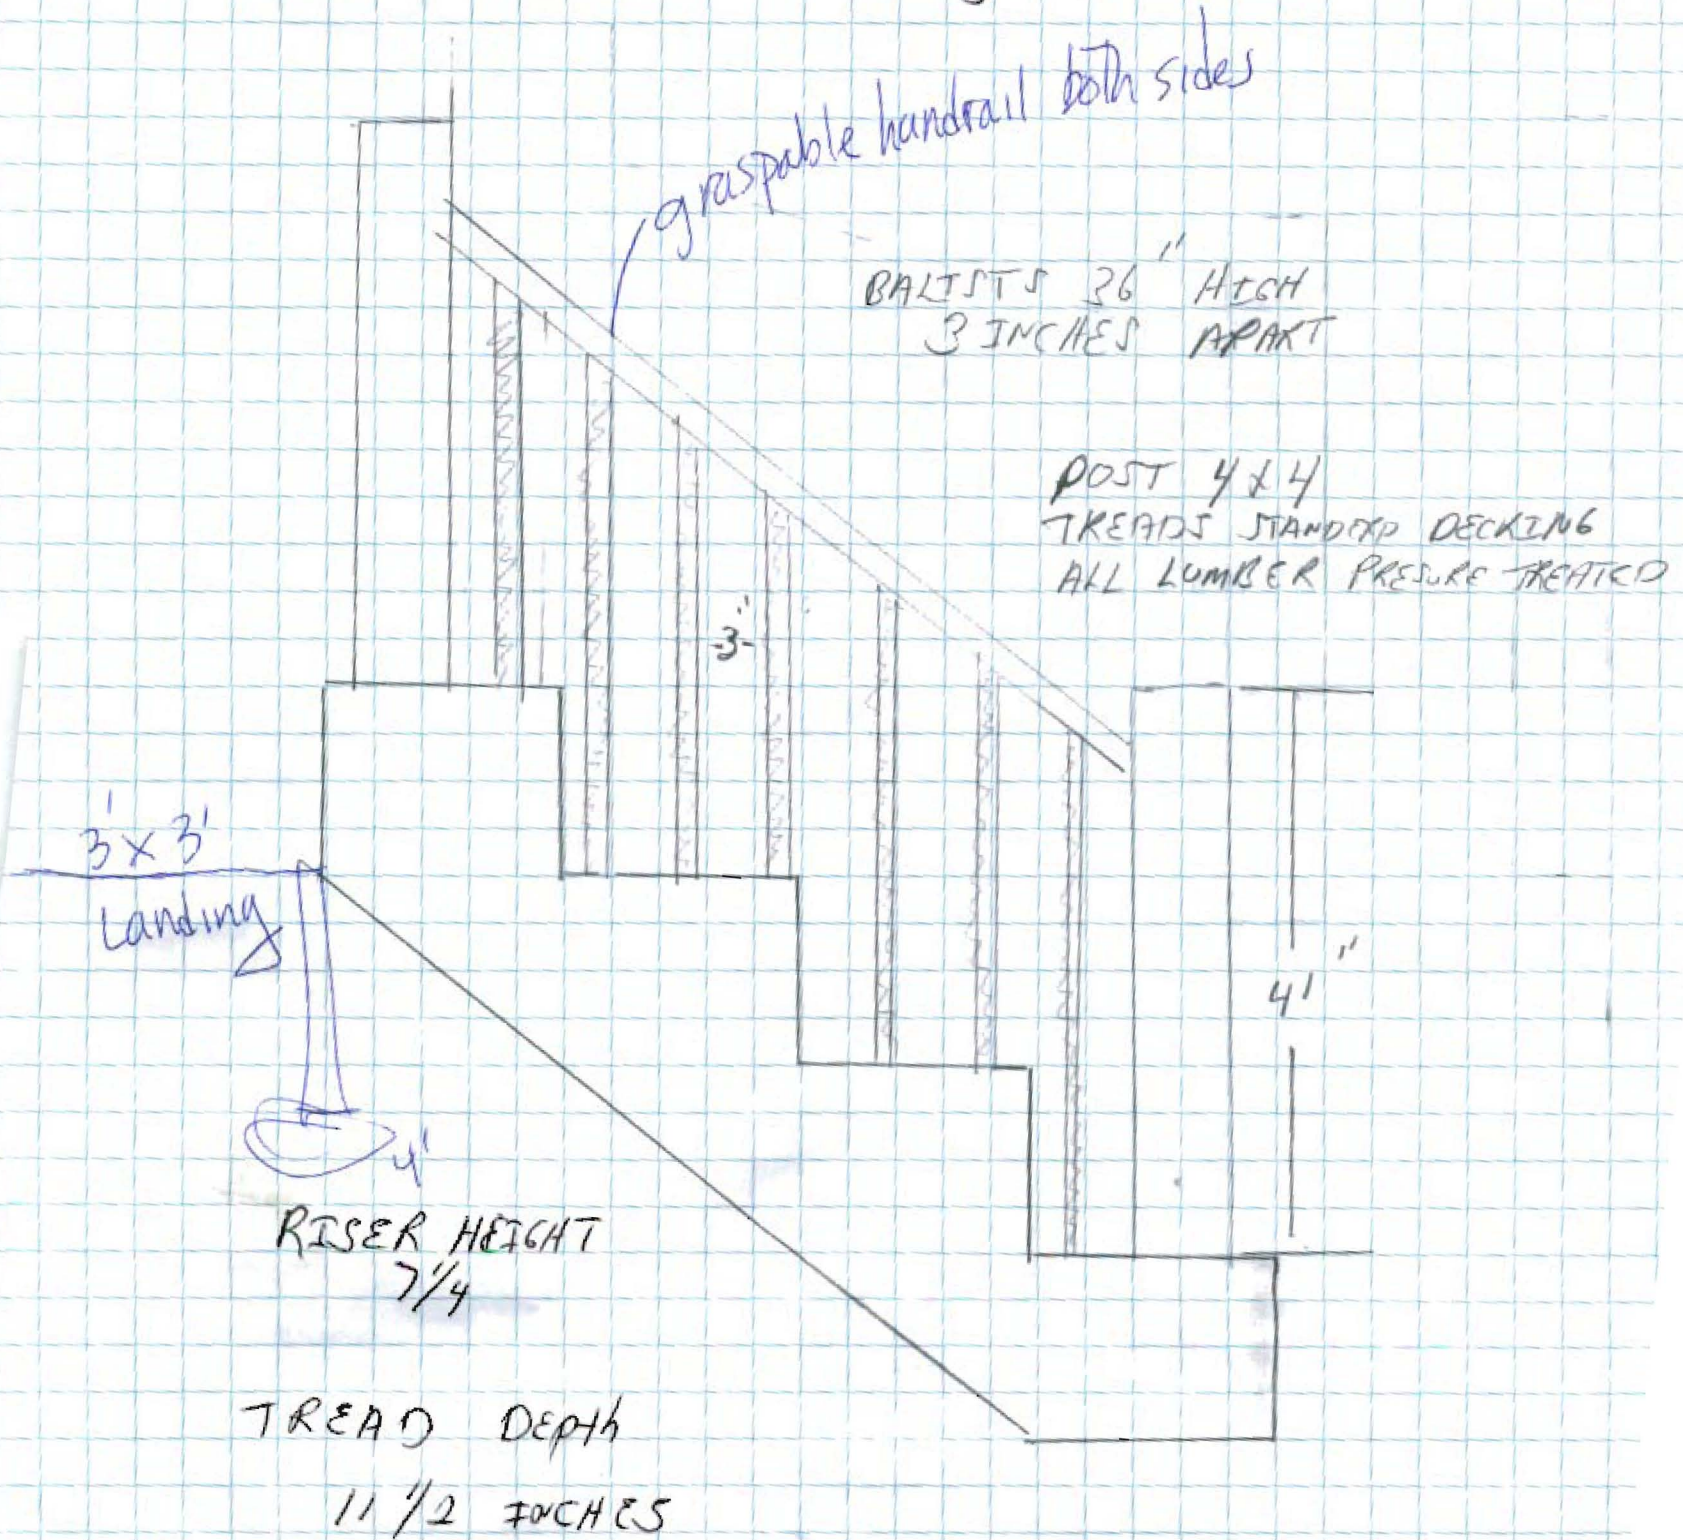 graspable handrail both sides
BALISTS 36" HIGH
3 INCHES APART
POST 4x4
TREADS STANDERD DECKING
ALL LUMBER PRESURE TREATED
3"
3' x 3'
Landing
41"
4'
RISER HEIGHT
7 1/4
TREAD Depth
11 1/2 INCHES